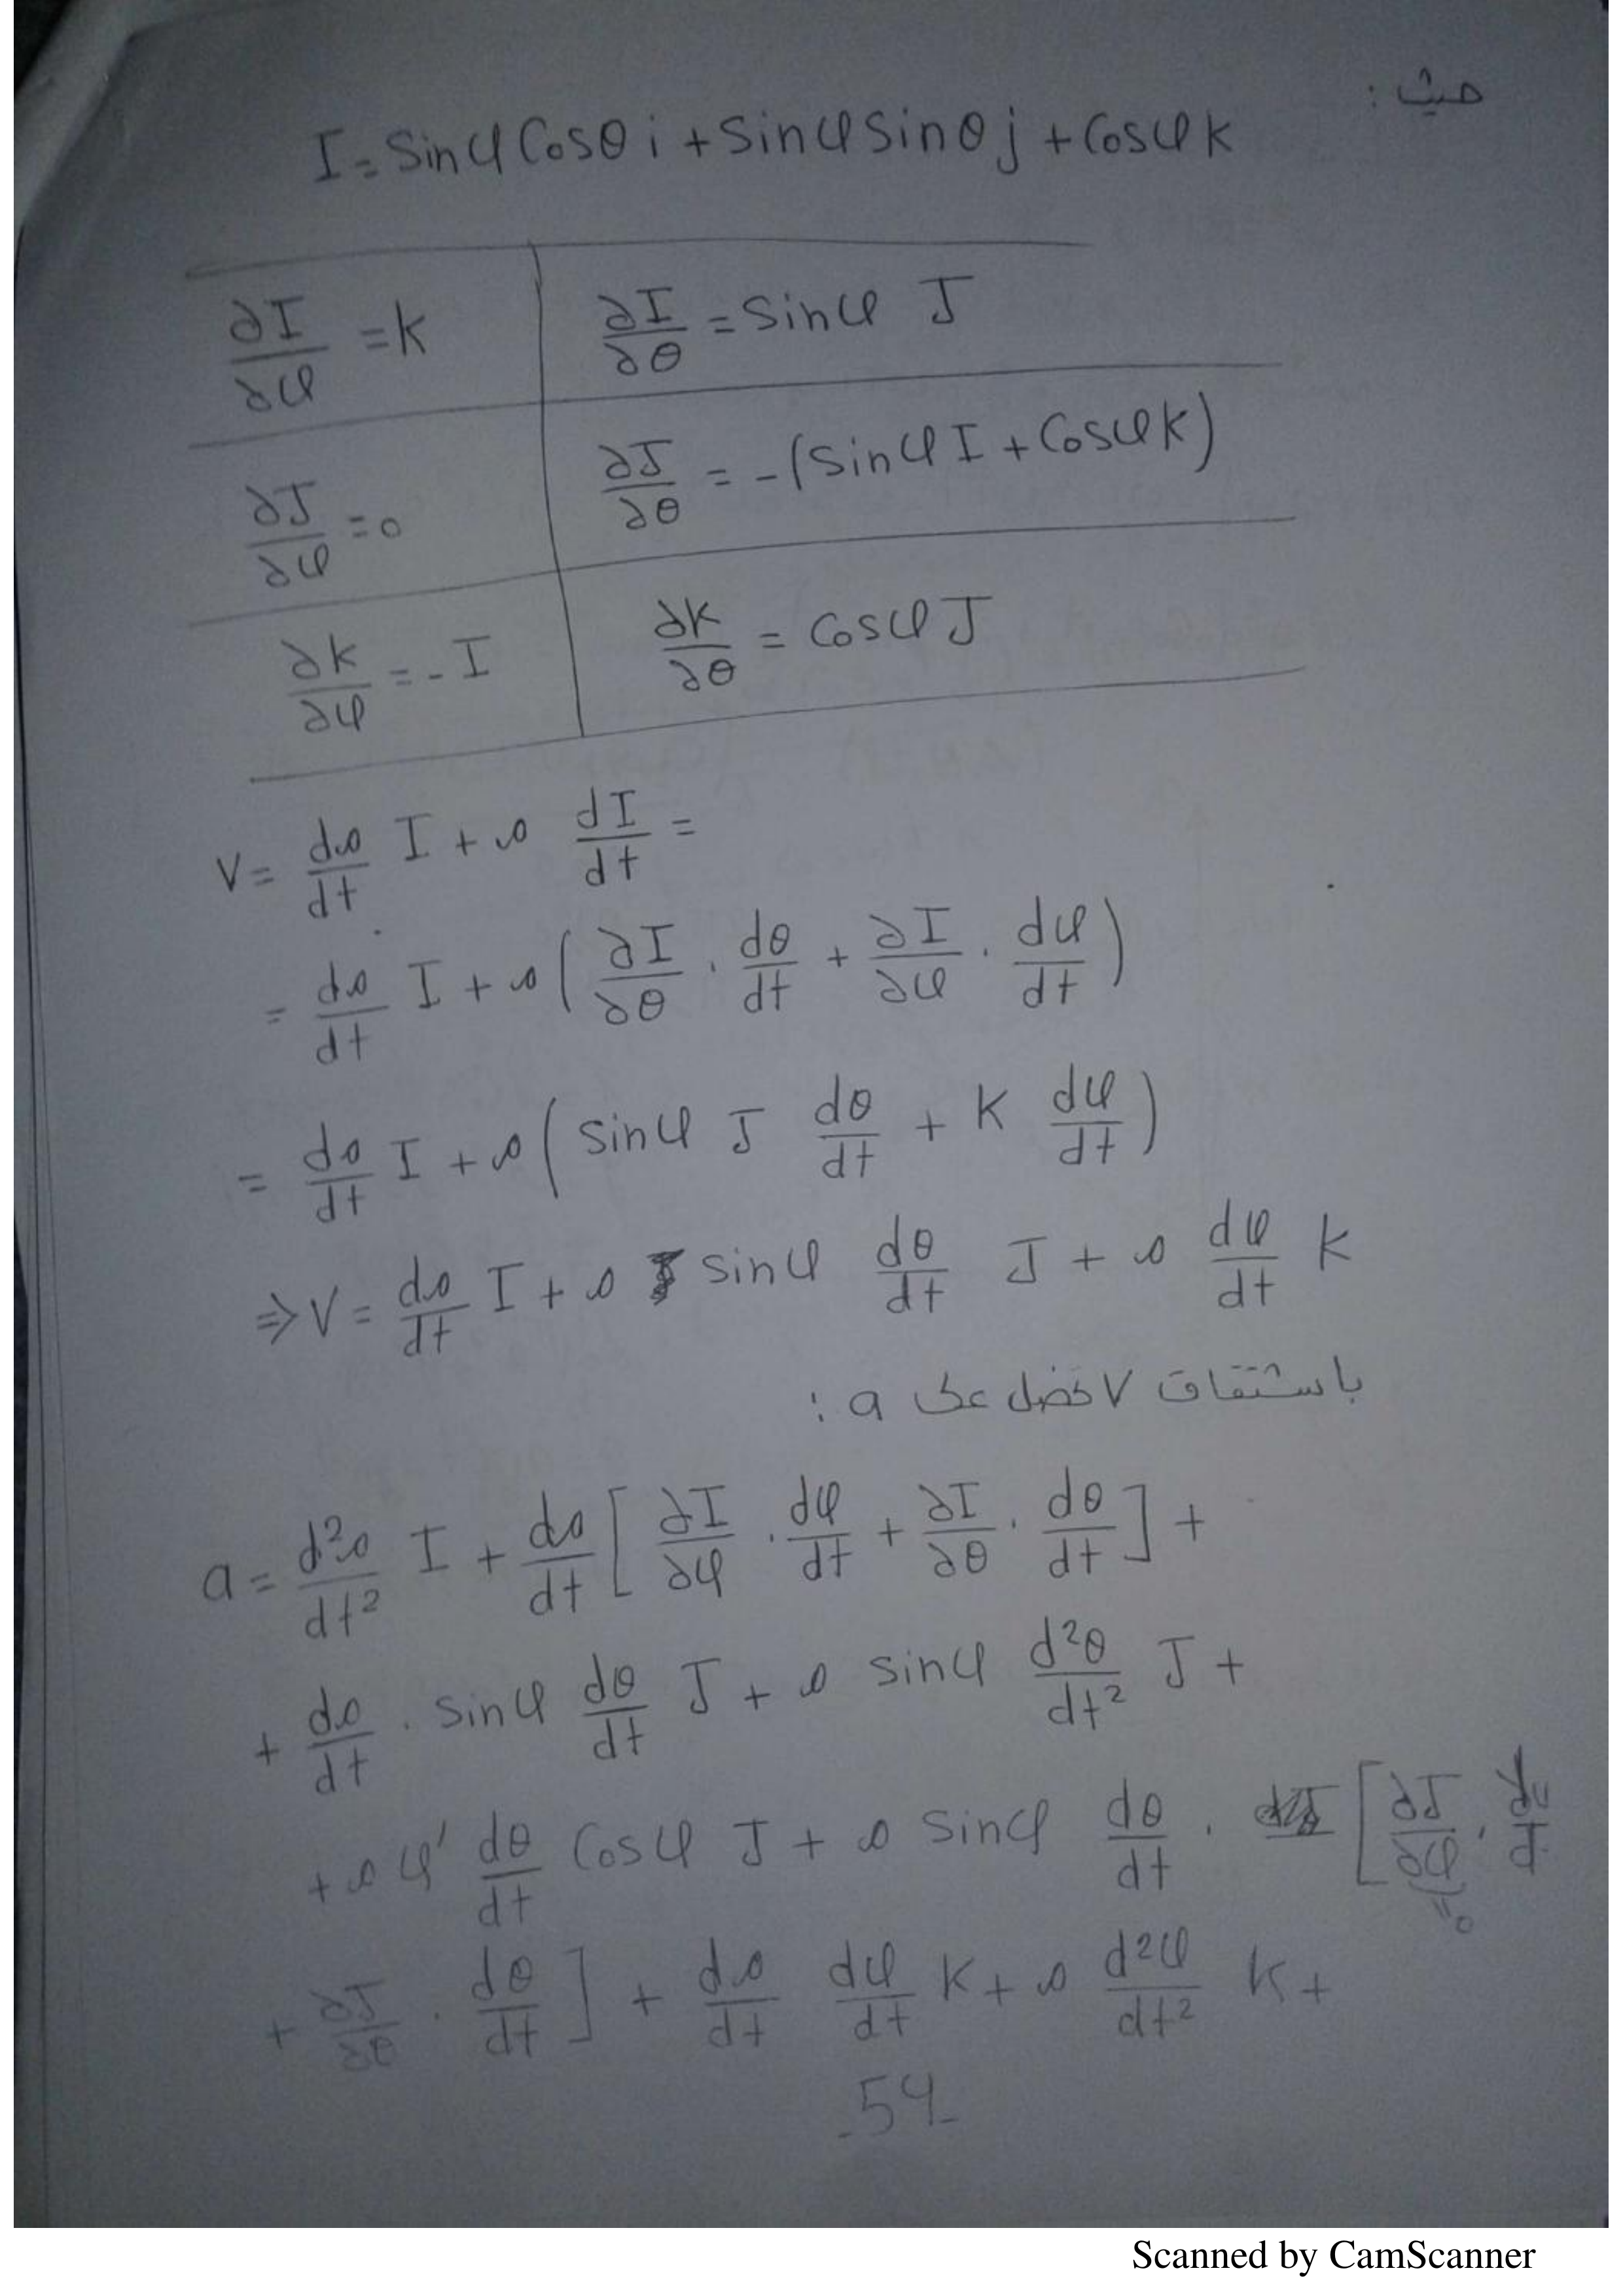 حيث :
I = Sinφ Cosθ i + Sinφ Sinθ j + Cosφ k
∂I/∂φ = K | ∂I/∂θ = Sinφ J
∂J/∂φ = 0 | ∂J/∂θ = -(Sinφ I + Cosφ K)
∂K/∂φ = - I | ∂K/∂θ = Cosφ J
V = dρ/dt I + ρ dI/dt =
= dρ/dt I + ρ ( ∂I/∂θ . dθ/dt + ∂I/∂φ . dφ/dt )
= dρ/dt I + ρ ( Sinφ J dθ/dt + K dφ/dt )
⇒ V = dρ/dt I + ρ sinφ dθ/dt J + ρ dφ/dt K
باشتقاق V نحصل على a :
a = d²ρ/dt² I + dρ/dt [ ∂I/∂φ . dφ/dt + ∂I/∂θ . dθ/dt ] +
+ dρ/dt . Sinφ dθ/dt J + ρ sinφ d²θ/dt² J +
+ ρ φ' dθ/dt Cosφ J + ρ sinφ dθ/dt . [ ∂J/∂φ .
=0
+ ∂J/∂θ . dθ/dt ] + dρ/dt dφ/dt K + ρ d²φ/dt² K +
- 54 -
Scanned by CamScanner